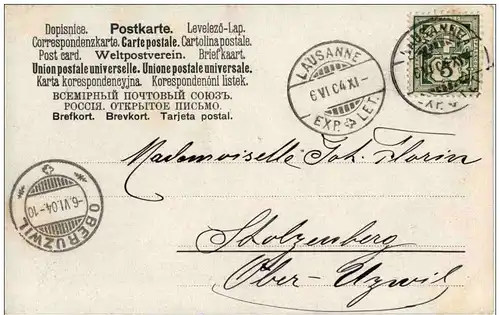 Dopisnice. Postkarte. Levelező-Lap.
Correspondenzkarte. Carte postale. Cartolina postale.
Post card. Weltpostverein. Briefkaart.
Union postale universelle. Unione postale universale.
Karta korespondencyjna. Korespondenční lístek.
ВСЕМІРНЫЙ ПОЧТОВЫЙ СОЮЗЪ.
РОССІЯ. ОТКРЫТОЕ ПИСЬМО.
Brefkort. Brevkort. Tarjeta postal.
LAUSANNE
6 VI 04 XI-
EXP. LET.
LAUSANNE
5
EXP.
Mademoiselle Joh. Florin
OBERUZWIL
-6.VI.04.-10
Stolzenberg
Ober-Uzwil